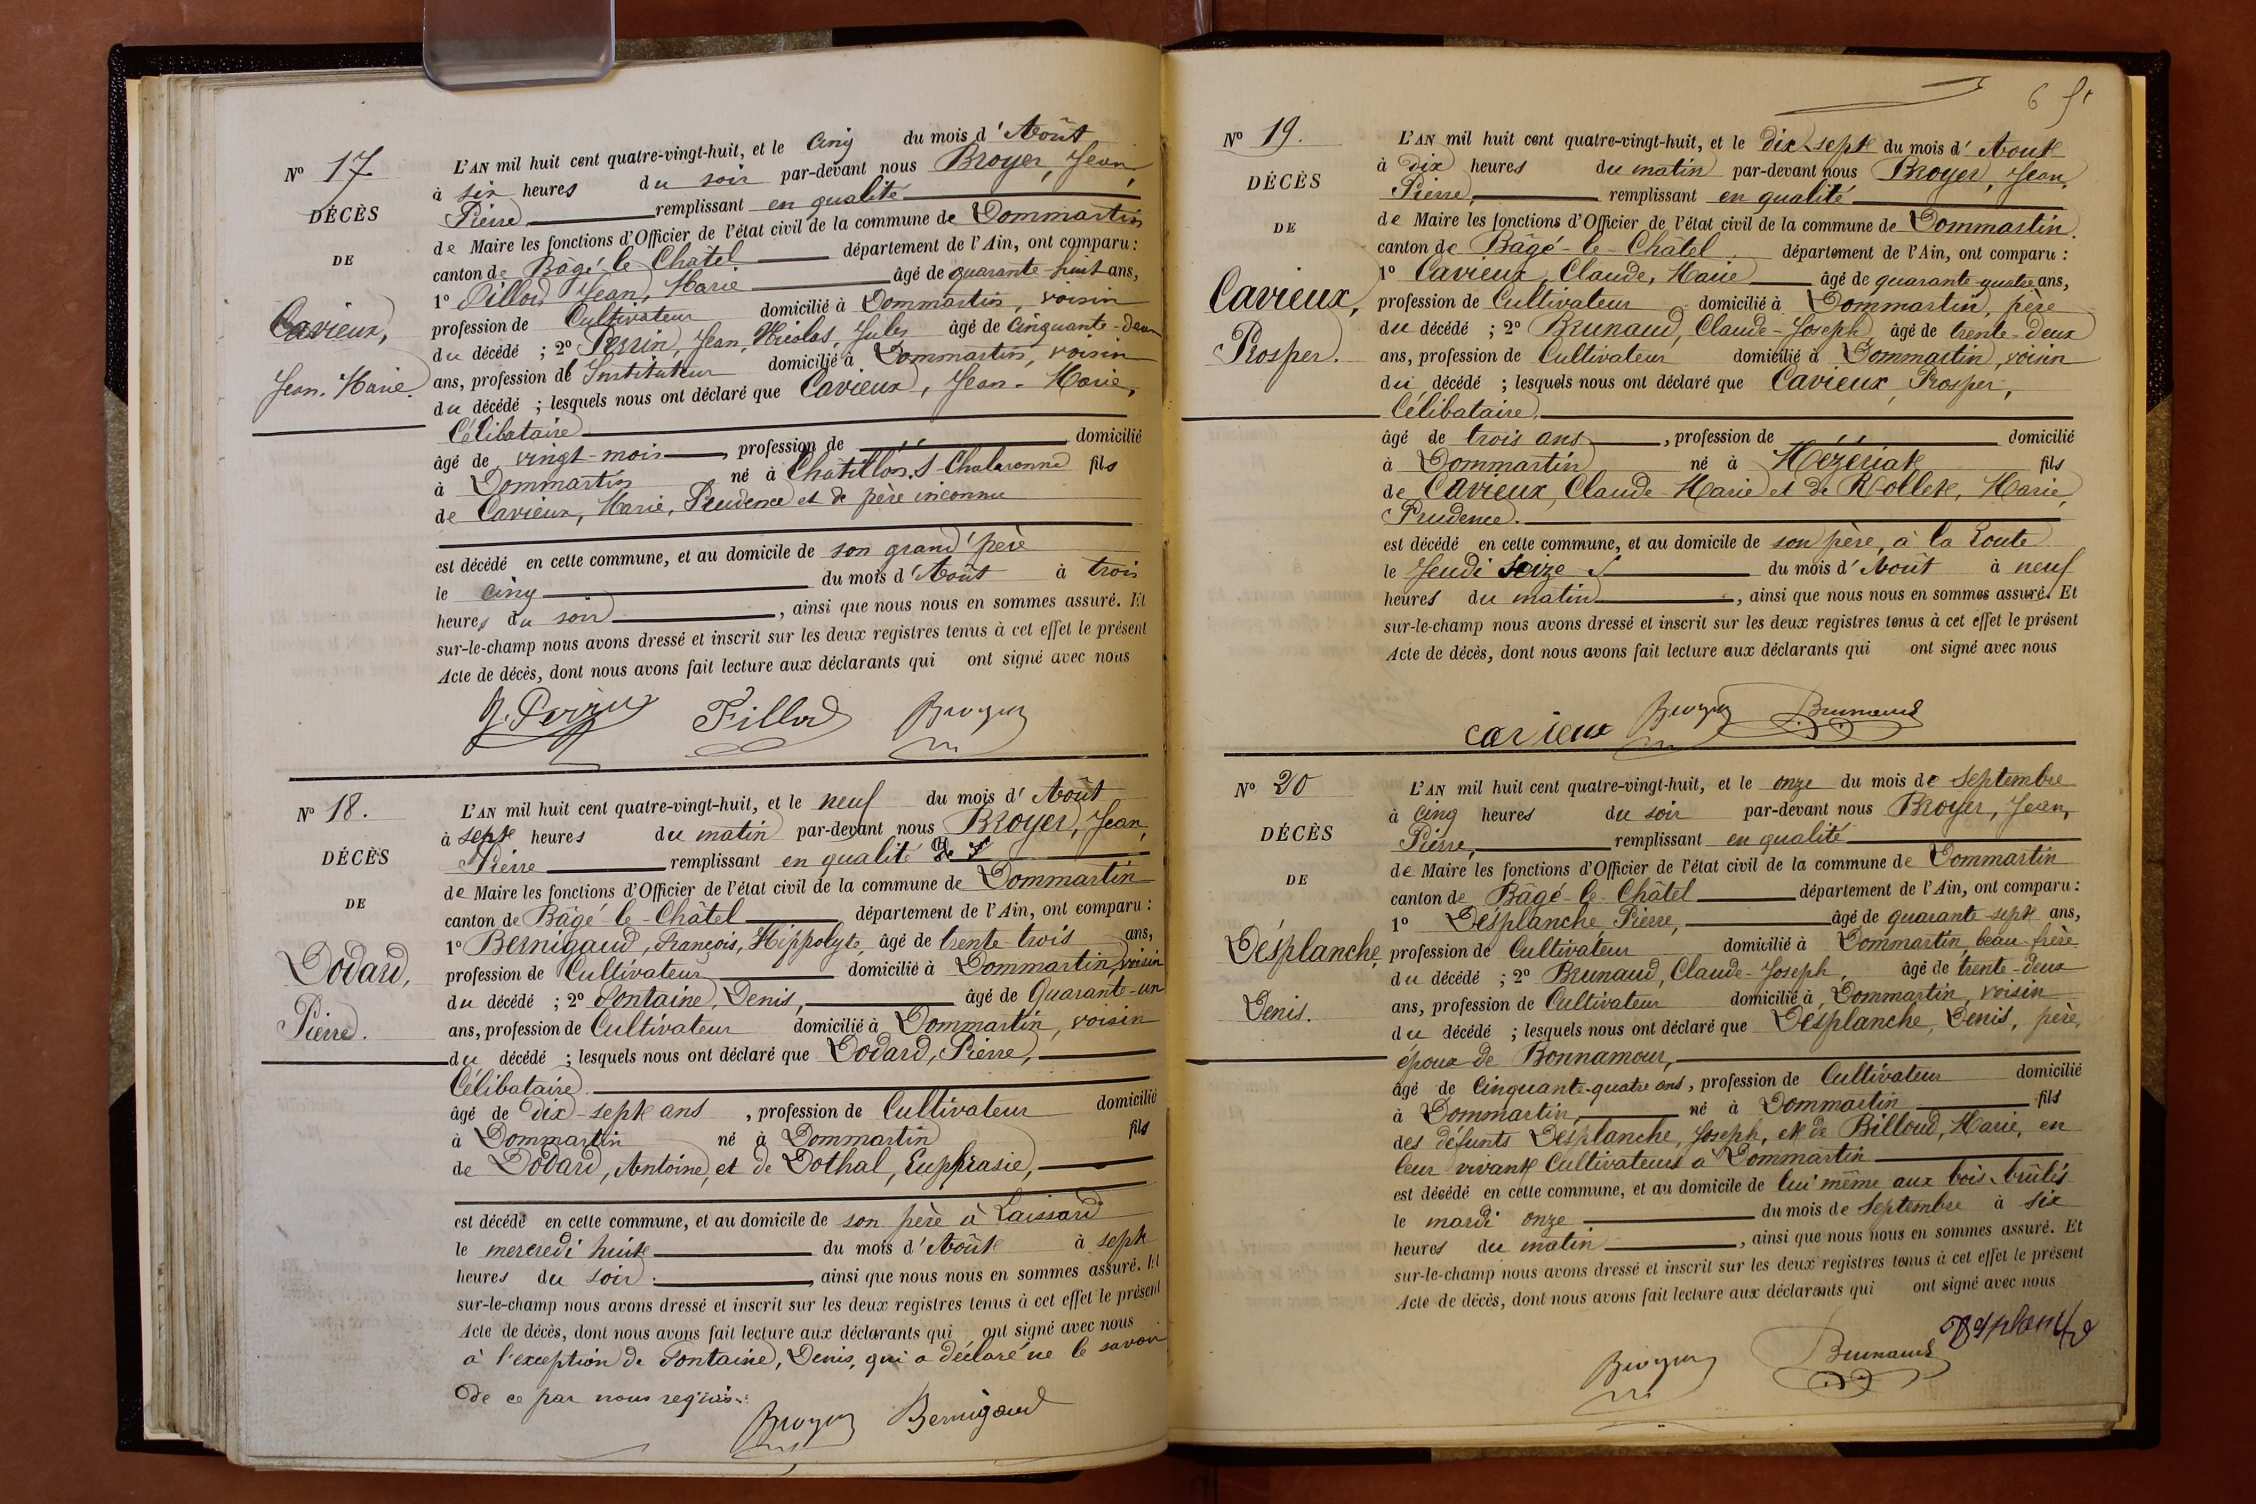 N° 17.
DÉCÈS
DE
Cavieux,
Jean-Marie.
L'AN mil huit cent quatre-vingt-huit, et le cinq du mois d'Août
à six heures du soir par-devant nous Broyer, Jean,
Pierre remplissant en qualité
de Maire les fonctions d'Officier de l'état civil de la commune de Dommartin
canton de Bâgé-le-Châtel département de l'Ain, ont comparu :
1° Fillod Jean, Marie âgé de quarante-huit ans,
profession de Cultivateur domicilié à Dommartin, voisin
du décédé ; 2° Perrin, Jean, Nicolas, Jules âgé de cinquante-deux
ans, profession de Instituteur domicilié à Dommartin, voisin
du décédé ; lesquels nous ont déclaré que Cavieux, Jean-Marie,
Célibataire
âgé de vingt-mois, profession de domicilié
à Dommartin né à Châtillon-s-Chalaronne fils
de Cavieux, Marie, Prudence et de père inconnu
est décédé en cette commune, et au domicile de son grand'père
le cinq du mois d'Août à trois
heures du soir, ainsi que nous nous en sommes assuré. Et
sur-le-champ nous avons dressé et inscrit sur les deux registres tenus à cet effet le présent
Acte de décès, dont nous avons fait lecture aux déclarants qui ont signé avec nous
J. Perrin Fillod Broyer
N° 18.
DÉCÈS
DE
Dodard,
Pierre.
L'AN mil huit cent quatre-vingt-huit, et le neuf du mois d'Août
à sept heures du matin par-devant nous Broyer, Jean,
Pierre remplissant en qualité
de Maire les fonctions d'Officier de l'état civil de la commune de Dommartin
canton de Bâgé-le-Châtel département de l'Ain, ont comparu :
1° Bernigaud, François, Hippolyte, âgé de trente-trois ans,
profession de Cultivateur domicilié à Dommartin, voisin
du décédé ; 2° Fontaine, Denis, âgé de Quarante-un
ans, profession de Cultivateur domicilié à Dommartin, voisin
du décédé ; lesquels nous ont déclaré que Dodard, Pierre,
Célibataire
âgé de dix-sept ans, profession de Cultivateur domicilié
à Dommartin né à Dommartin fils
de Dodard, Antoine, et de Dothal, Euphrasie,
est décédé en cette commune, et au domicile de son père à Laissard
le mercredi huit du mois d'Août à sept
heures du soir, ainsi que nous nous en sommes assuré. Et
sur-le-champ nous avons dressé et inscrit sur les deux registres tenus à cet effet le présent
Acte de décès, dont nous avons fait lecture aux déclarants qui ont signé avec nous
à l'exception de Fontaine, Denis, qui a déclaré ne le savoir
de ce par nous requis.
Broyer Bernigaud
6
N° 19.
DÉCÈS
DE
Cavieux,
Prosper.
L'AN mil huit cent quatre-vingt-huit, et le dix-sept du mois d'Août
à dix heures du matin par-devant nous Broyer, Jean,
Pierre, remplissant en qualité
de Maire les fonctions d'Officier de l'état civil de la commune de Dommartin.
canton de Bâgé-le-Chatel département de l'Ain, ont comparu :
1° Cavieux, Claude, Marie âgé de quarante-quatre ans,
profession de Cultivateur domicilié à Dommartin, père
du décédé ; 2° Brunaud, Claude-Joseph, âgé de trente-deux
ans, profession de Cultivateur domicilié à Dommartin, voisin
du décédé ; lesquels nous ont déclaré que Cavieux, Prosper,
Célibataire,
âgé de trois ans, profession de domicilié
à Dommartin né à Mézériat fils
de Cavieux, Claude-Marie et de Rollet, Marie,
Prudence.
est décédé en cette commune, et au domicile de son père, à la Route
le Jeudi seize du mois d'Août à neuf
heures du matin, ainsi que nous nous en sommes assuré. Et
sur-le-champ nous avons dressé et inscrit sur les deux registres tenus à cet effet le présent
Acte de décès, dont nous avons fait lecture aux déclarants qui ont signé avec nous
cavieux Broyer Brunaud
N° 20
DÉCÈS
DE
Désplanche,
Denis.
L'AN mil huit cent quatre-vingt-huit, et le onze du mois de Septembre
à cinq heures du soir par-devant nous Broyer, Jean,
Pierre, remplissant en qualité
de Maire les fonctions d'Officier de l'état civil de la commune de Dommartin
canton de Bâgé-le-Châtel département de l'Ain, ont comparu :
1° Désplanche Pierre, âgé de quarante-sept ans,
profession de Cultivateur domicilié à Dommartin, beau-frère
du décédé ; 2° Brunaud, Claude-Joseph, âgé de trente-deux
ans, profession de Cultivateur domicilié à Dommartin, voisin
du décédé ; lesquels nous ont déclaré que Désplanche, Denis, père,
époux de Bonnamour,
âgé de cinquante-quatre ans, profession de Cultivateur domicilié
à Dommartin, né à Dommartin fils
des défunts Désplanche, Joseph, et de Billoud, Marie, en
leur vivant Cultivateurs à Dommartin
est décédé en cette commune, et au domicile de lui même aux bois-brûlés
le mardi onze du mois de Septembre à six
heures du matin, ainsi que nous nous en sommes assuré. Et
sur-le-champ nous avons dressé et inscrit sur les deux registres tenus à cet effet le présent
Acte de décès, dont nous avons fait lecture aux déclarants qui ont signé avec nous
Broyer Brunaud Desplanche